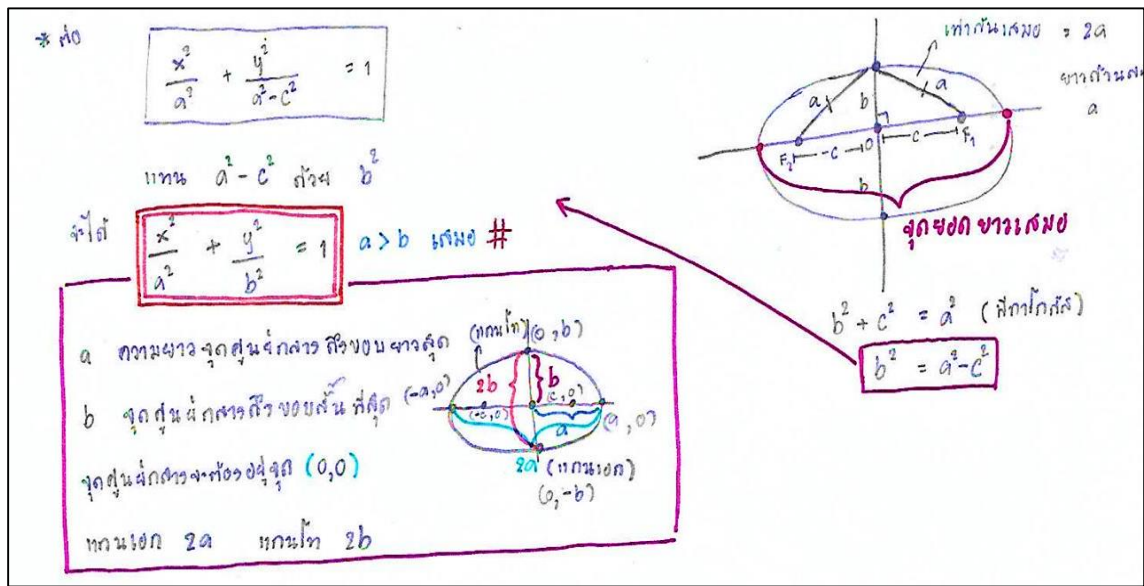 * ต่อ
x²/a² + y²/(a²-c²) = 1
แทน a² - c² ด้วย b²
จะได้ x²/a² + y²/b² = 1 a > b เสมอ #
a ความยาวจุดศูนย์กลางถึงขอบยาวสุด
b จุดศูนย์กลางถึงขอบสั้นที่สุด
จุดศูนย์กลางจะต้องอยู่จุด (0,0)
แกนเอก 2a แกนโท 2b
(แกนโท) (0,b)
(-a,0) 2b b
(-c,0) (c,0)
a (a,0)
2a (แกนเอก)
(0,-b)
เท่ากันเสมอ = 2a
a b a
a
F₂ -c 0 c F₁
b
จุดยอด ยาวเสมอ
b² + c² = a² (พีทาโกรัส)
b² = a²-c²